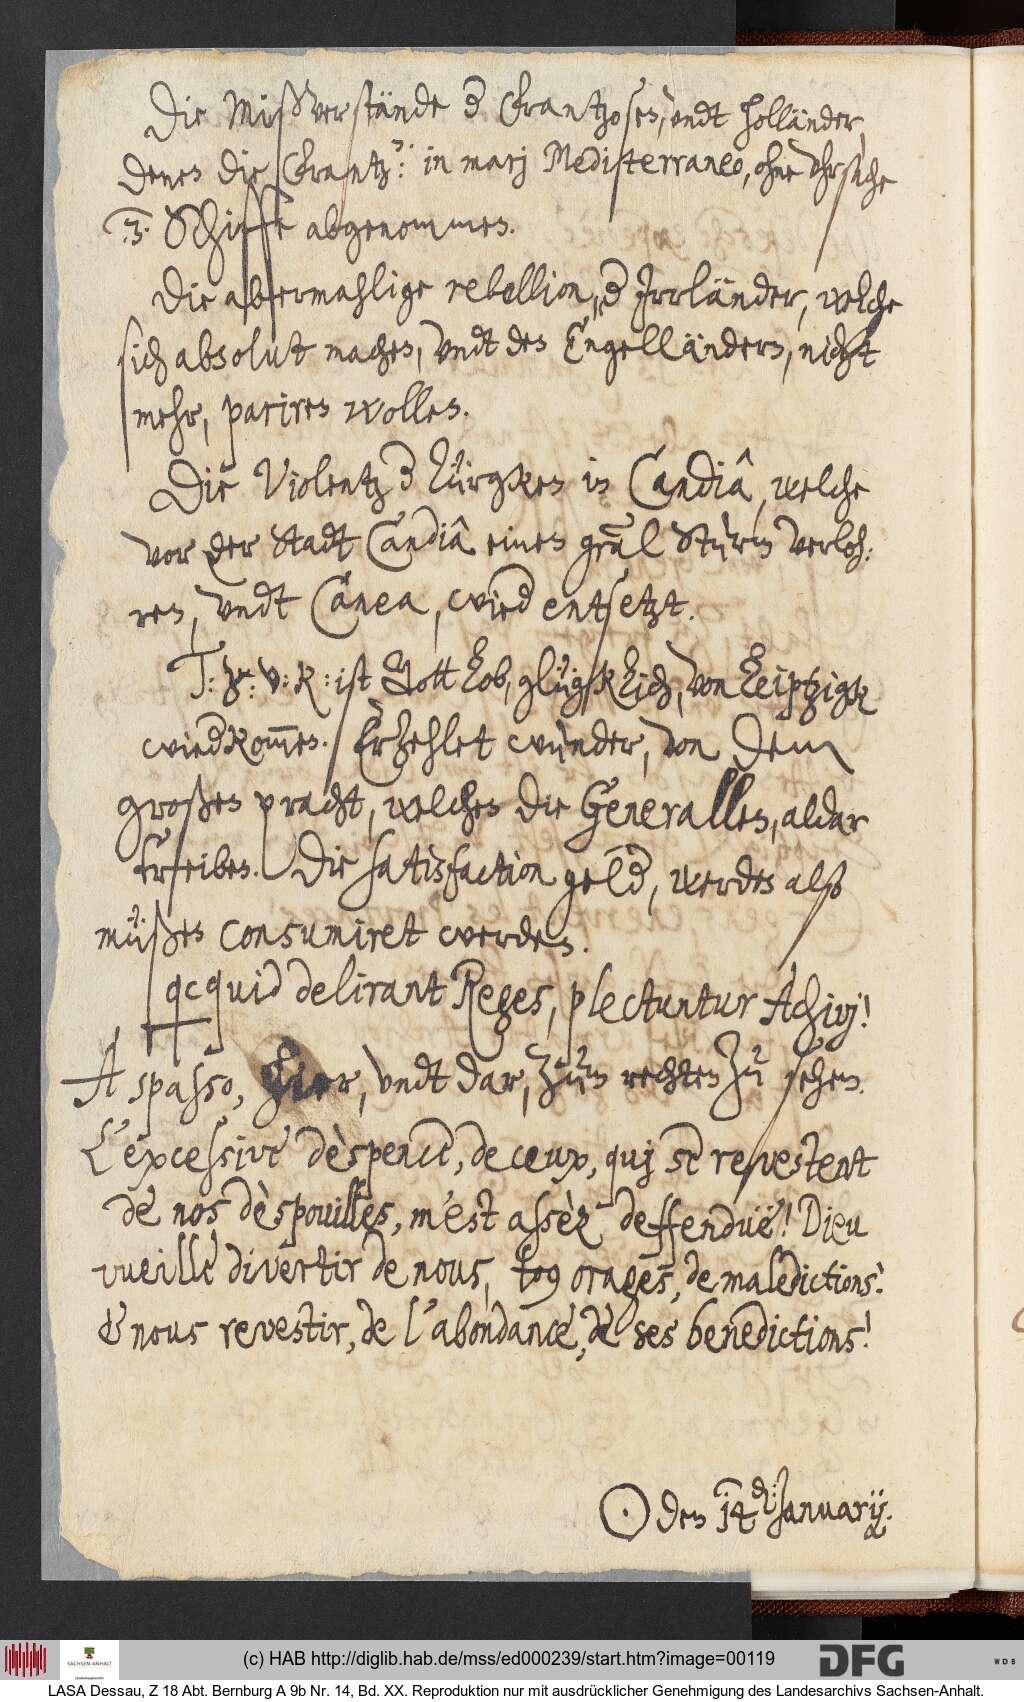 Die Mißverstände d Frantzosen, undt Holländer,
denen die Frantz: in marj Mediterraneo, ohne Uhrsache
.3. Schiffe abgenommen.
Die abermahlige rebellion, d Irrländer, welche
sich absolut machen, undt den Engelländern, nicht
mehr, pariren wollen.
Die Violentz d Türgken in Candiâ, welche
vor der Stadt Candiâ einen gnâl Sturm verloh:
ren, undt Canea, wied entsetzt.
T: v: R: ist Gott lob, glügklich, von Leiptzigk
wiedkommen. Erzehlet wunder, von dem
großen pracht, welchen die Generallen, aldar
treiben. Die satisfaction geld, werden alß
müßen consumiret werden.
quicquid delirant Reges, plectuntur Achivj!
A spasso, hier, undt dar, zum rechten zu sehen.
L'excessive dèspence, de ceux, quj se revestent
de nos dèspouilles, m'est assèz deffenduë! Dieu
vueille divertir de nous, to9 orages, de maledictions!
& nous revestir, de l'abondance, de ses benedictions!
☉ den 14 d: Januarij.
(c) HAB http://diglib.hab.de/mss/ed000239/start.htm?image=00119
SACHSEN-ANHALT
DFG
WDB
LASA Dessau, Z 18 Abt. Bernburg A 9b Nr. 14, Bd. XX. Reproduktion nur mit ausdrücklicher Genehmigung des Landesarchivs Sachsen-Anhalt.